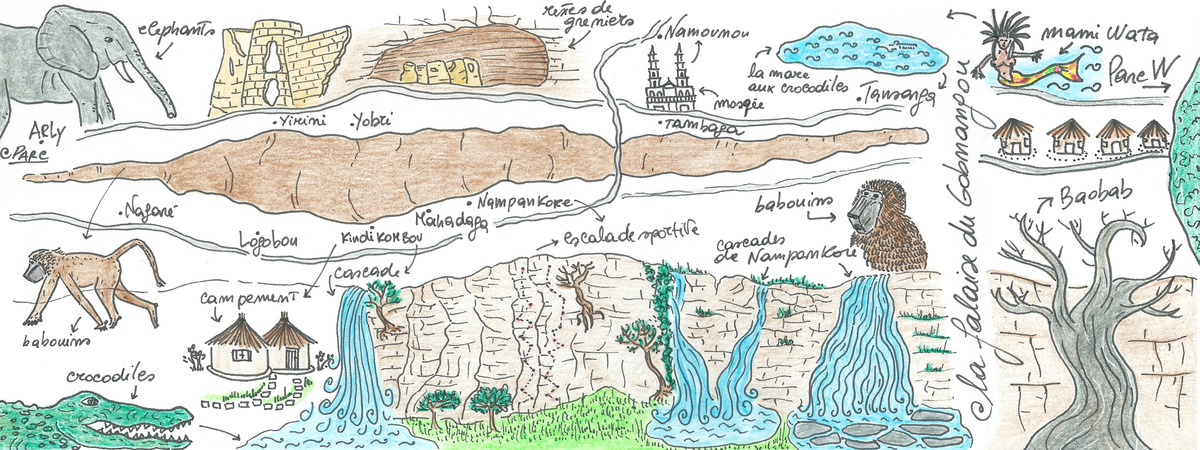 elephants
restes de
greniers
Namounou
la mare
aux crocodiles
mosquée
Tansarga
mami Wata
Parc W
Arly
Parc
Yirini
Yobri
Tambaga
la falaise du Gobnangou
Baobab
Nagaré
Logobou
Kindikombou
Mahadaga
Nampankore
escalade sportive
babouins
cascades
de Nampankore
cascade
campement
babouins
crocodiles